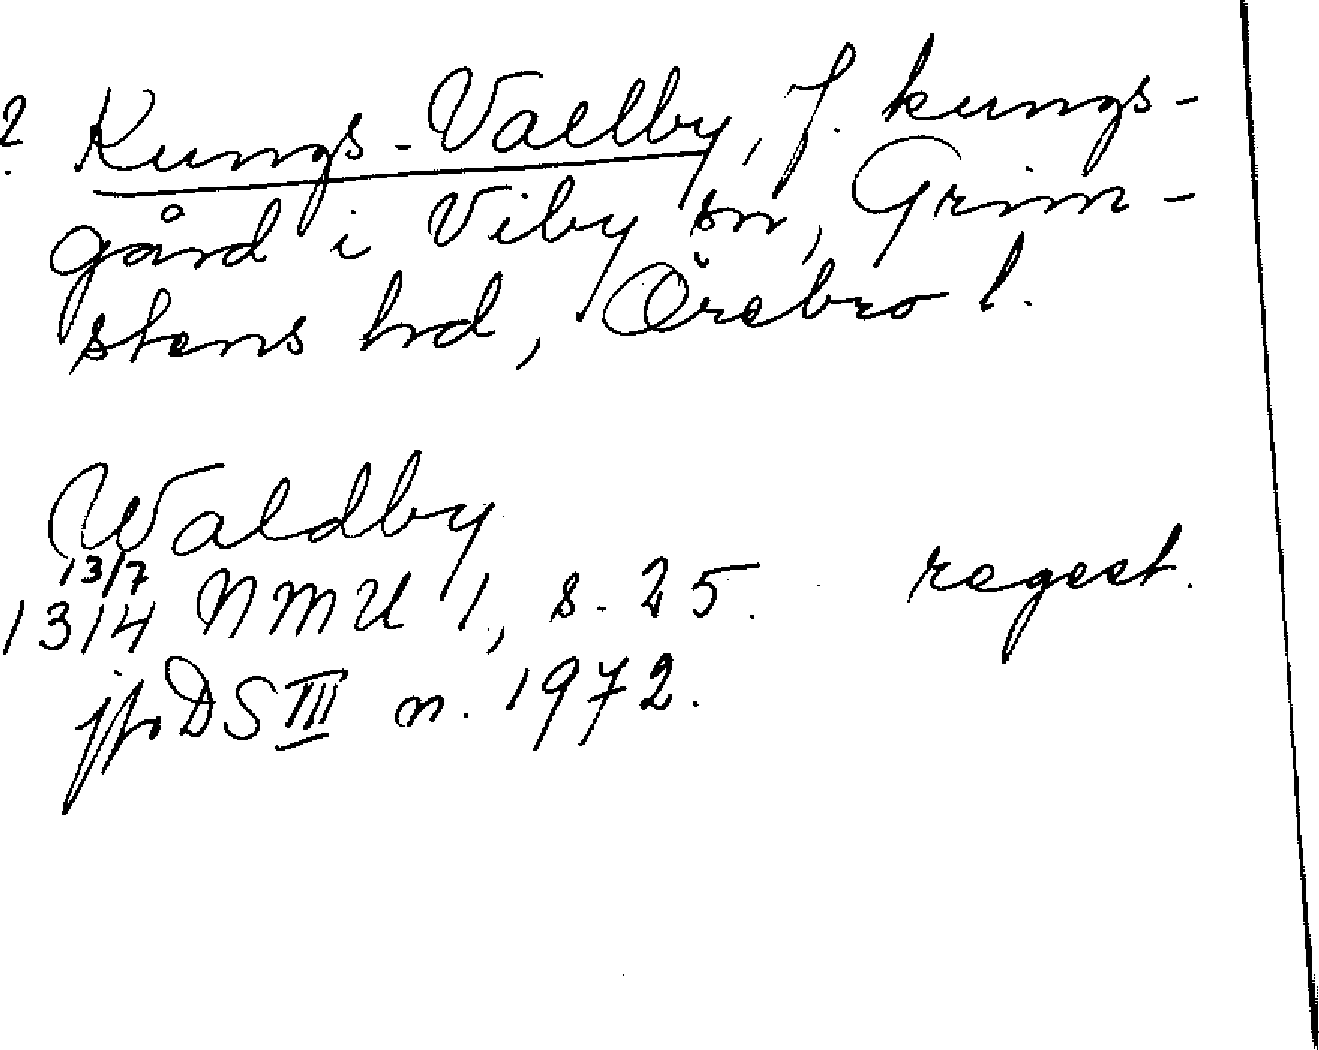 2. Kungs-Vallby, f. kungs-
gård i Viby sn, Grim-
stens hd, Örebro l.
Waldby
13/7
1314 NMU 1, s. 25. regest.
jfr DS III n. 1972.